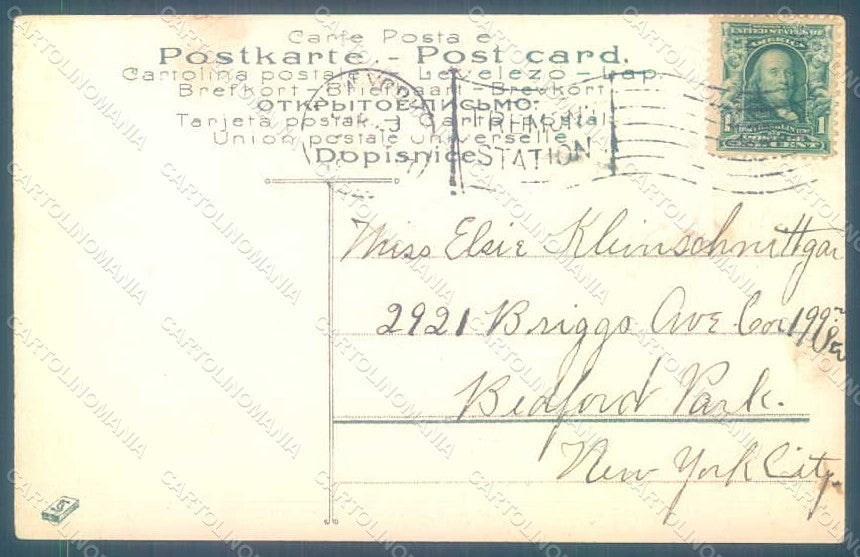 Carte Postale
Postkarte - Post card.
Cartolina postale - Levelezo - Lap.
Brefkort - Briefkaart - Brevkort
ОТКРЫТОЕ ПИСЬМО.
Tarjeta postal - Carta postal
Union postale universelle
Dopisnice
STATION
UNITED STATES OF
AMERICA
1 1
ONE CENT
Miss Elsie Kleinschnittgar
2921 Briggs Ave. Cor 199
Bedford Park.
New York City.
CARTOLINOMANIA